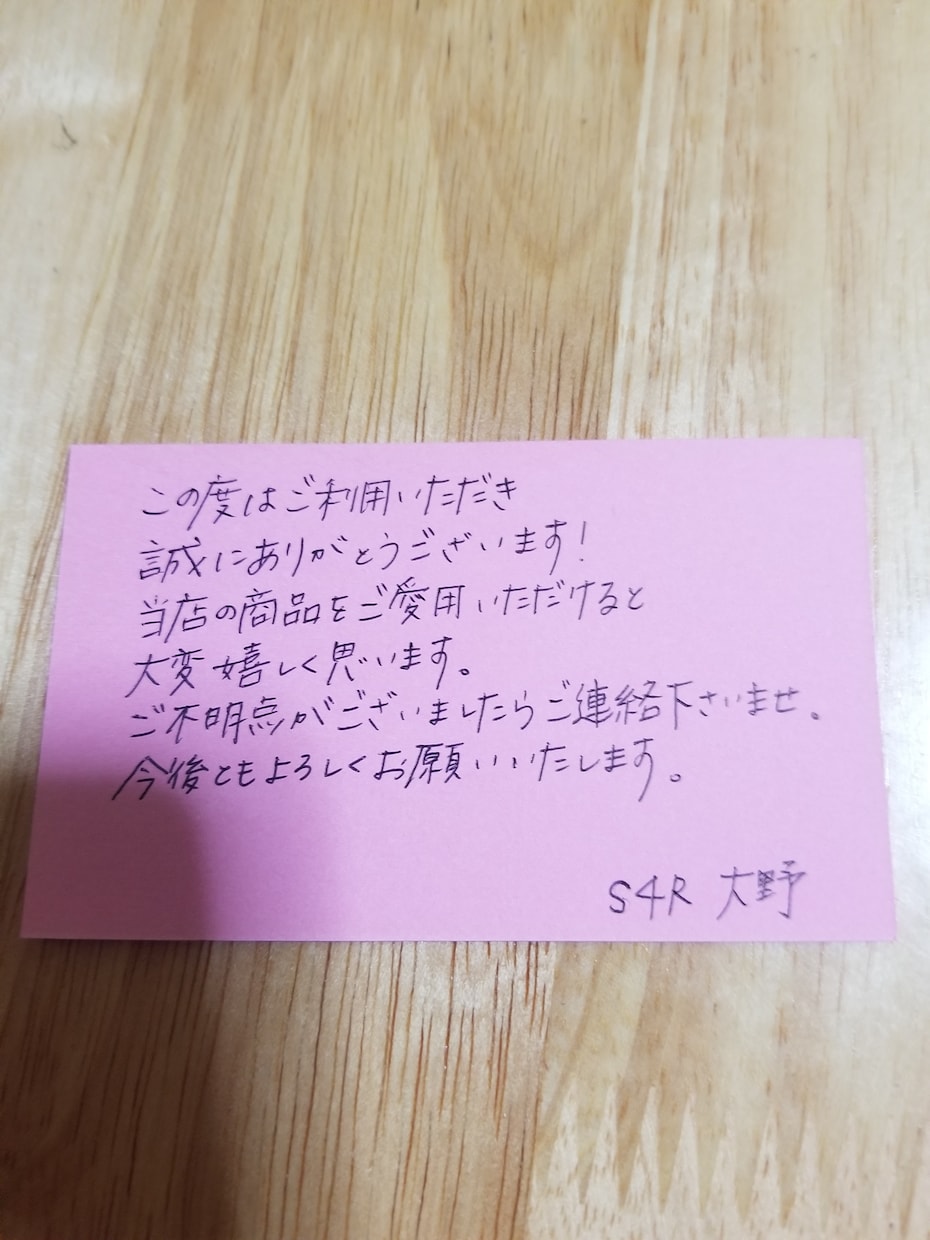 この度はご利用いただき
誠にありがとうございます!
当店の商品をご愛用いただけると
大変嬉しく思います。
ご不明点がございましたらご連絡下さいませ。
今後ともよろしくお願いいたします。
S4R 大野